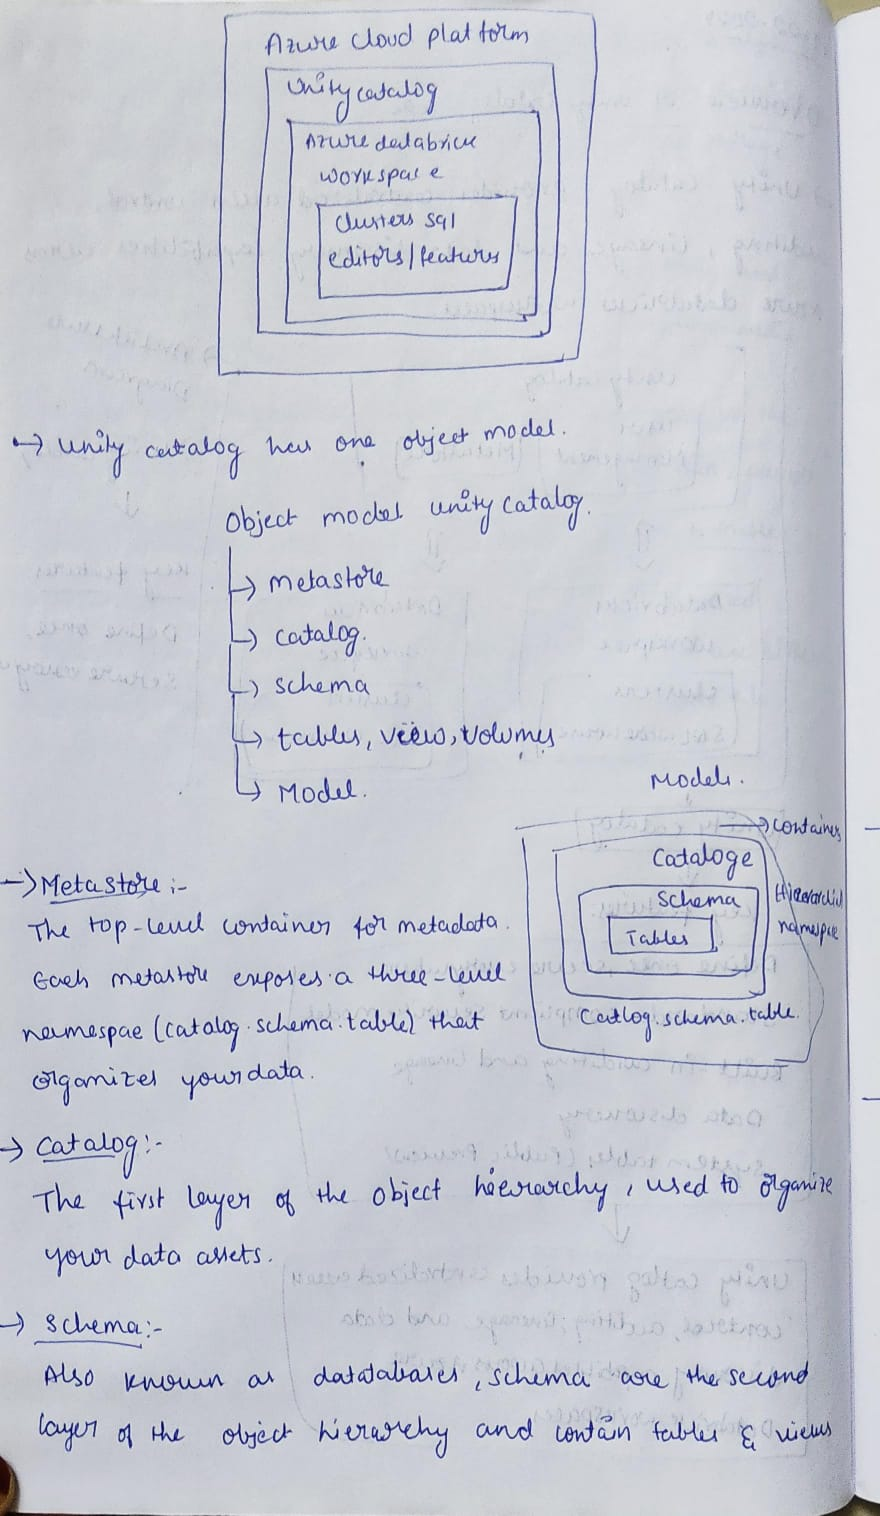 Azure cloud platform
Unity catalog
Azure databrick
workspace
Clusters sql
editors/features
→ Unity catalog has one object model.
Object model unity catalog.
→ metastore
→ catalog.
→ schema
→ tables, view, volumes
→ Model.
Models.
→ container
Cataloge
Schema
Tables
namespae
Catlog.schema.table.
→ Metastore :-
The top-level container for metadata.
Each metastore exposes a three-level
namespae (catalog.schema.table) that
organizes your data.
→ Catalog :-
The first layer of the object hierarchy, used to organize
your data assets.
→ Schema :-
Also known as datatabases, schema are the second
layer of the object hierarchy and contain tables & views